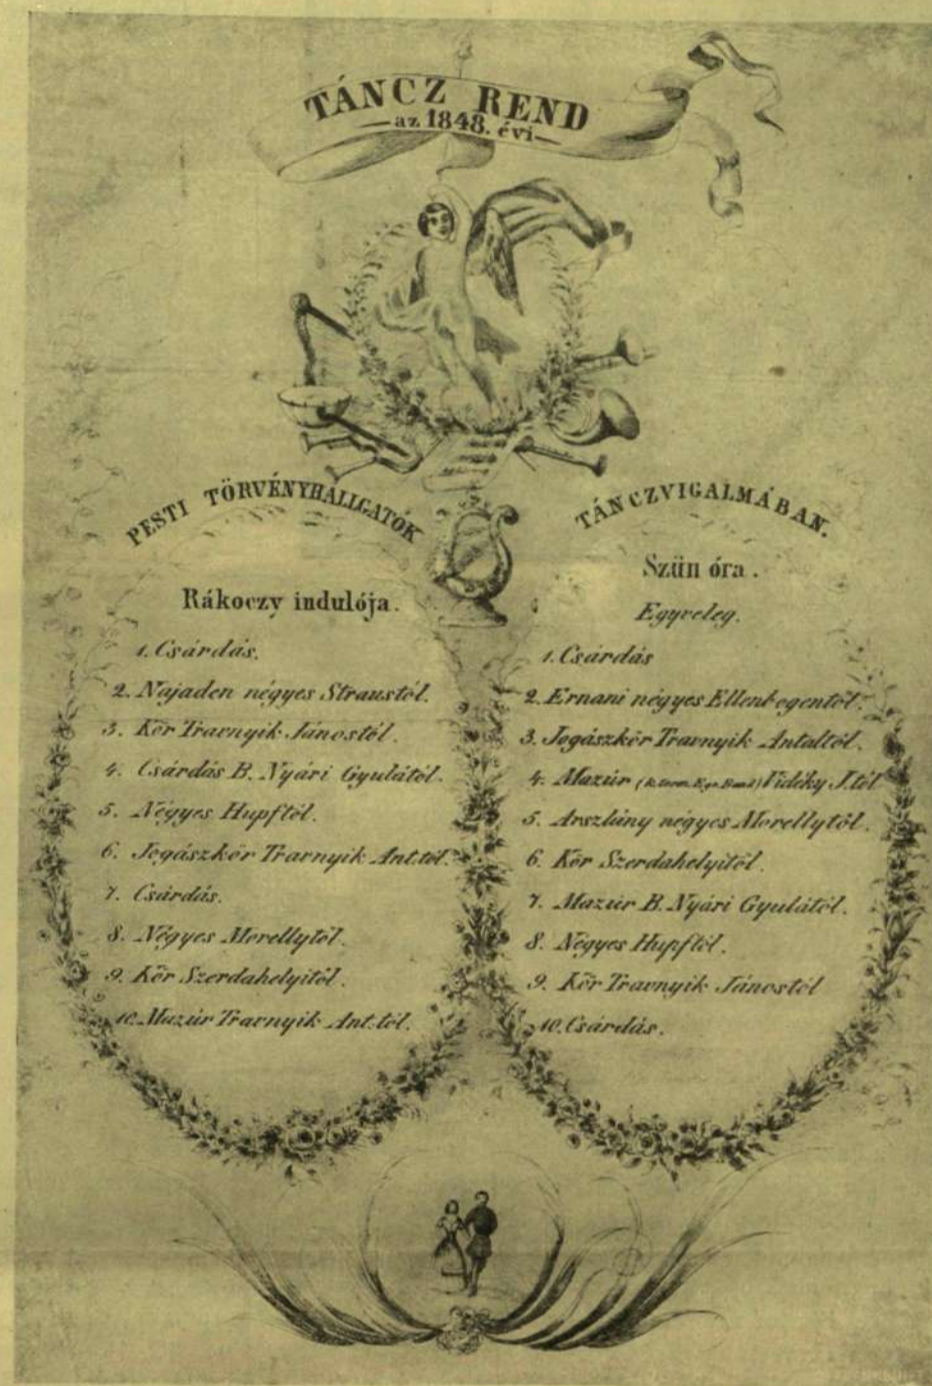 TÁNCZ REND
az 1848. évi
PESTI TÖRVÉNYHALLGATÓK
TÁNCZVIGALMÁBAN.
Rákoczy indulója.
1. Csárdás.
2. Najaden négyes Straustól.
3. Kör Travnyik Jánostól.
4. Csárdás B. Nyári Gyulától.
5. Négyes Hupftól.
6. Jogászkör Travnyik Ant.tól.
7. Csárdás.
8. Négyes Morellytöl.
9. Kör Szerdahelyitöl.
10. Mazúr Travnyik Ant.tól.
Szün óra.
Egyveleg.
1. Csárdás
2. Ernani négyes Ellenbogentöl.
3. Jogászkör Travnyik Antaltól.
4. Mazúr Vidéky J.tól
5. Arszlány négyes Morellytöl.
6. Kör Szerdahelyitöl.
7. Mazúr B. Nyári Gyulától.
8. Négyes Hupftól.
9. Kör Travnyik Jánostól
10. Csárdás.